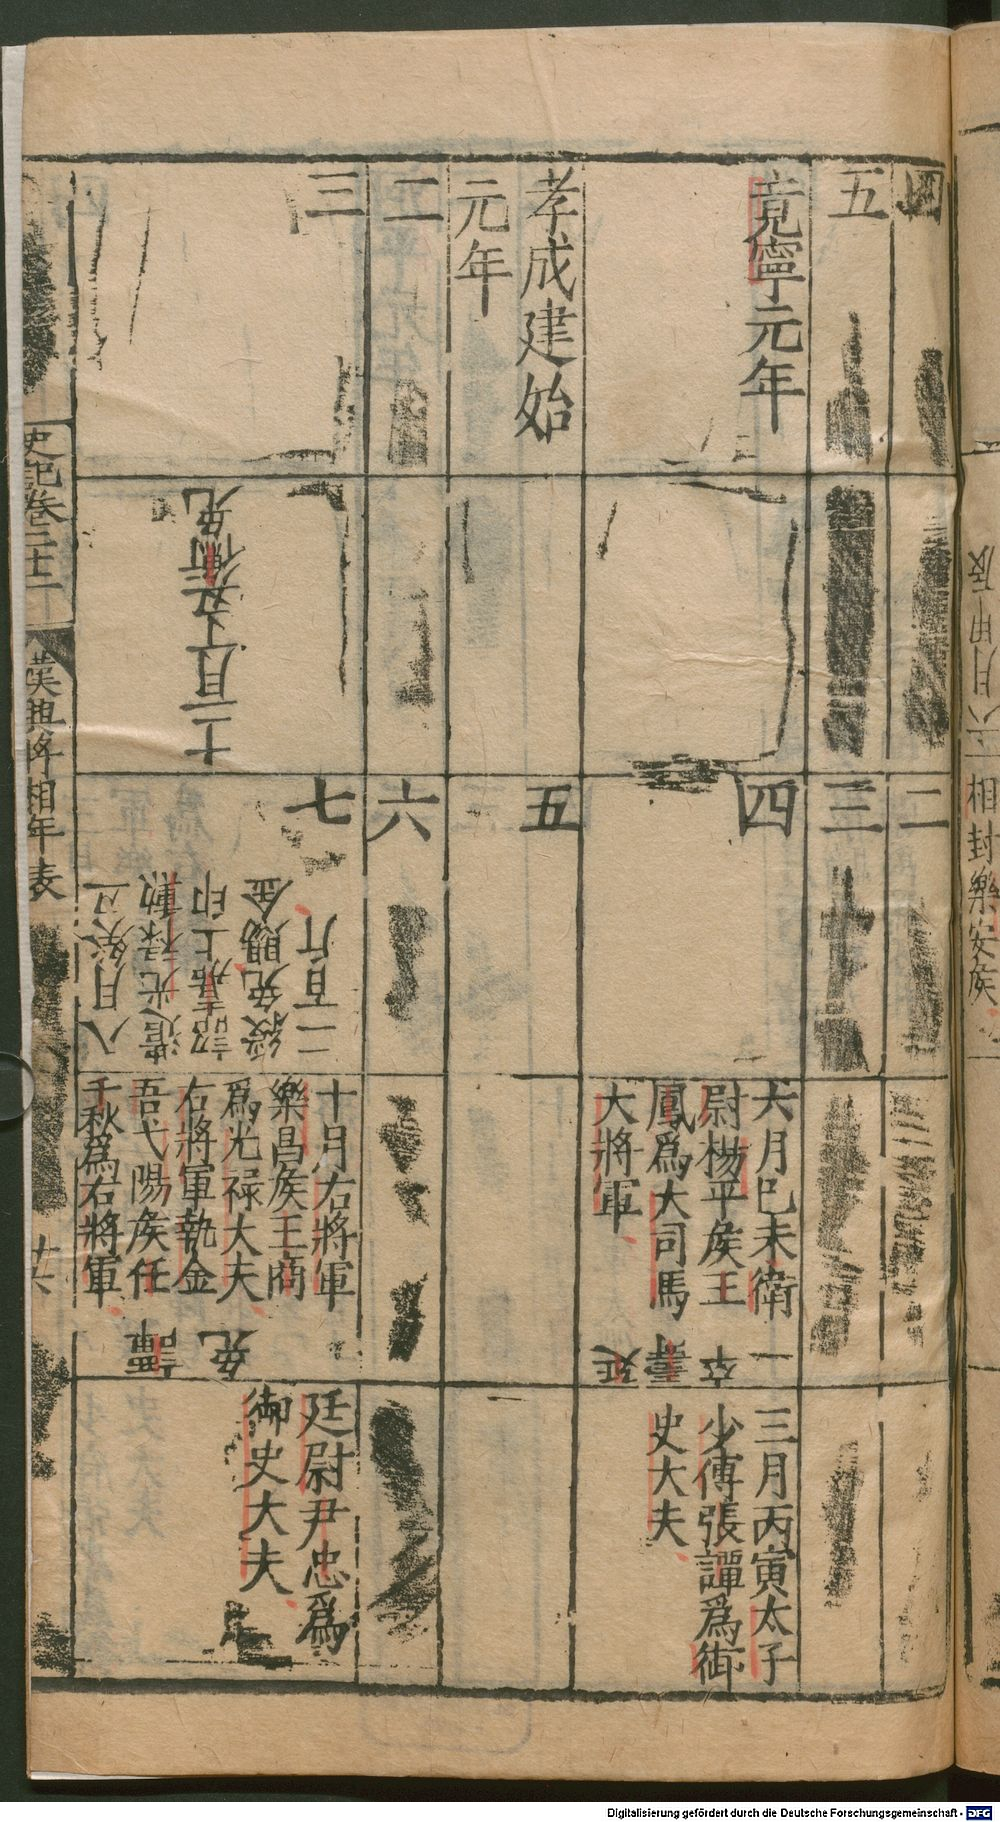 四
二
五
三
竟寧元年
四
六月巳未衛
尉楊平侯王
鳳爲大司馬
大將軍
延壽卒
三月丙寅太子
少傅張譚爲御
史大夫
孝成建始
元年
五
二
六
三
十二月丁丑衡免
七
八月癸丑
遣光祿勲
詔嘉上印
綬免賜金
二百斤
十月右將軍
樂昌侯王商
爲光禄大夫
右將軍執金
吾弋陽侯任
千秋爲右將軍
譚免
廷尉尹忠爲
御史大夫
史記卷二十二
漢興將相年表
六月甲辰
相封樂安侯
Digitalisierung gefördert durch die Deutsche Forschungsgemeinschaft - DFG